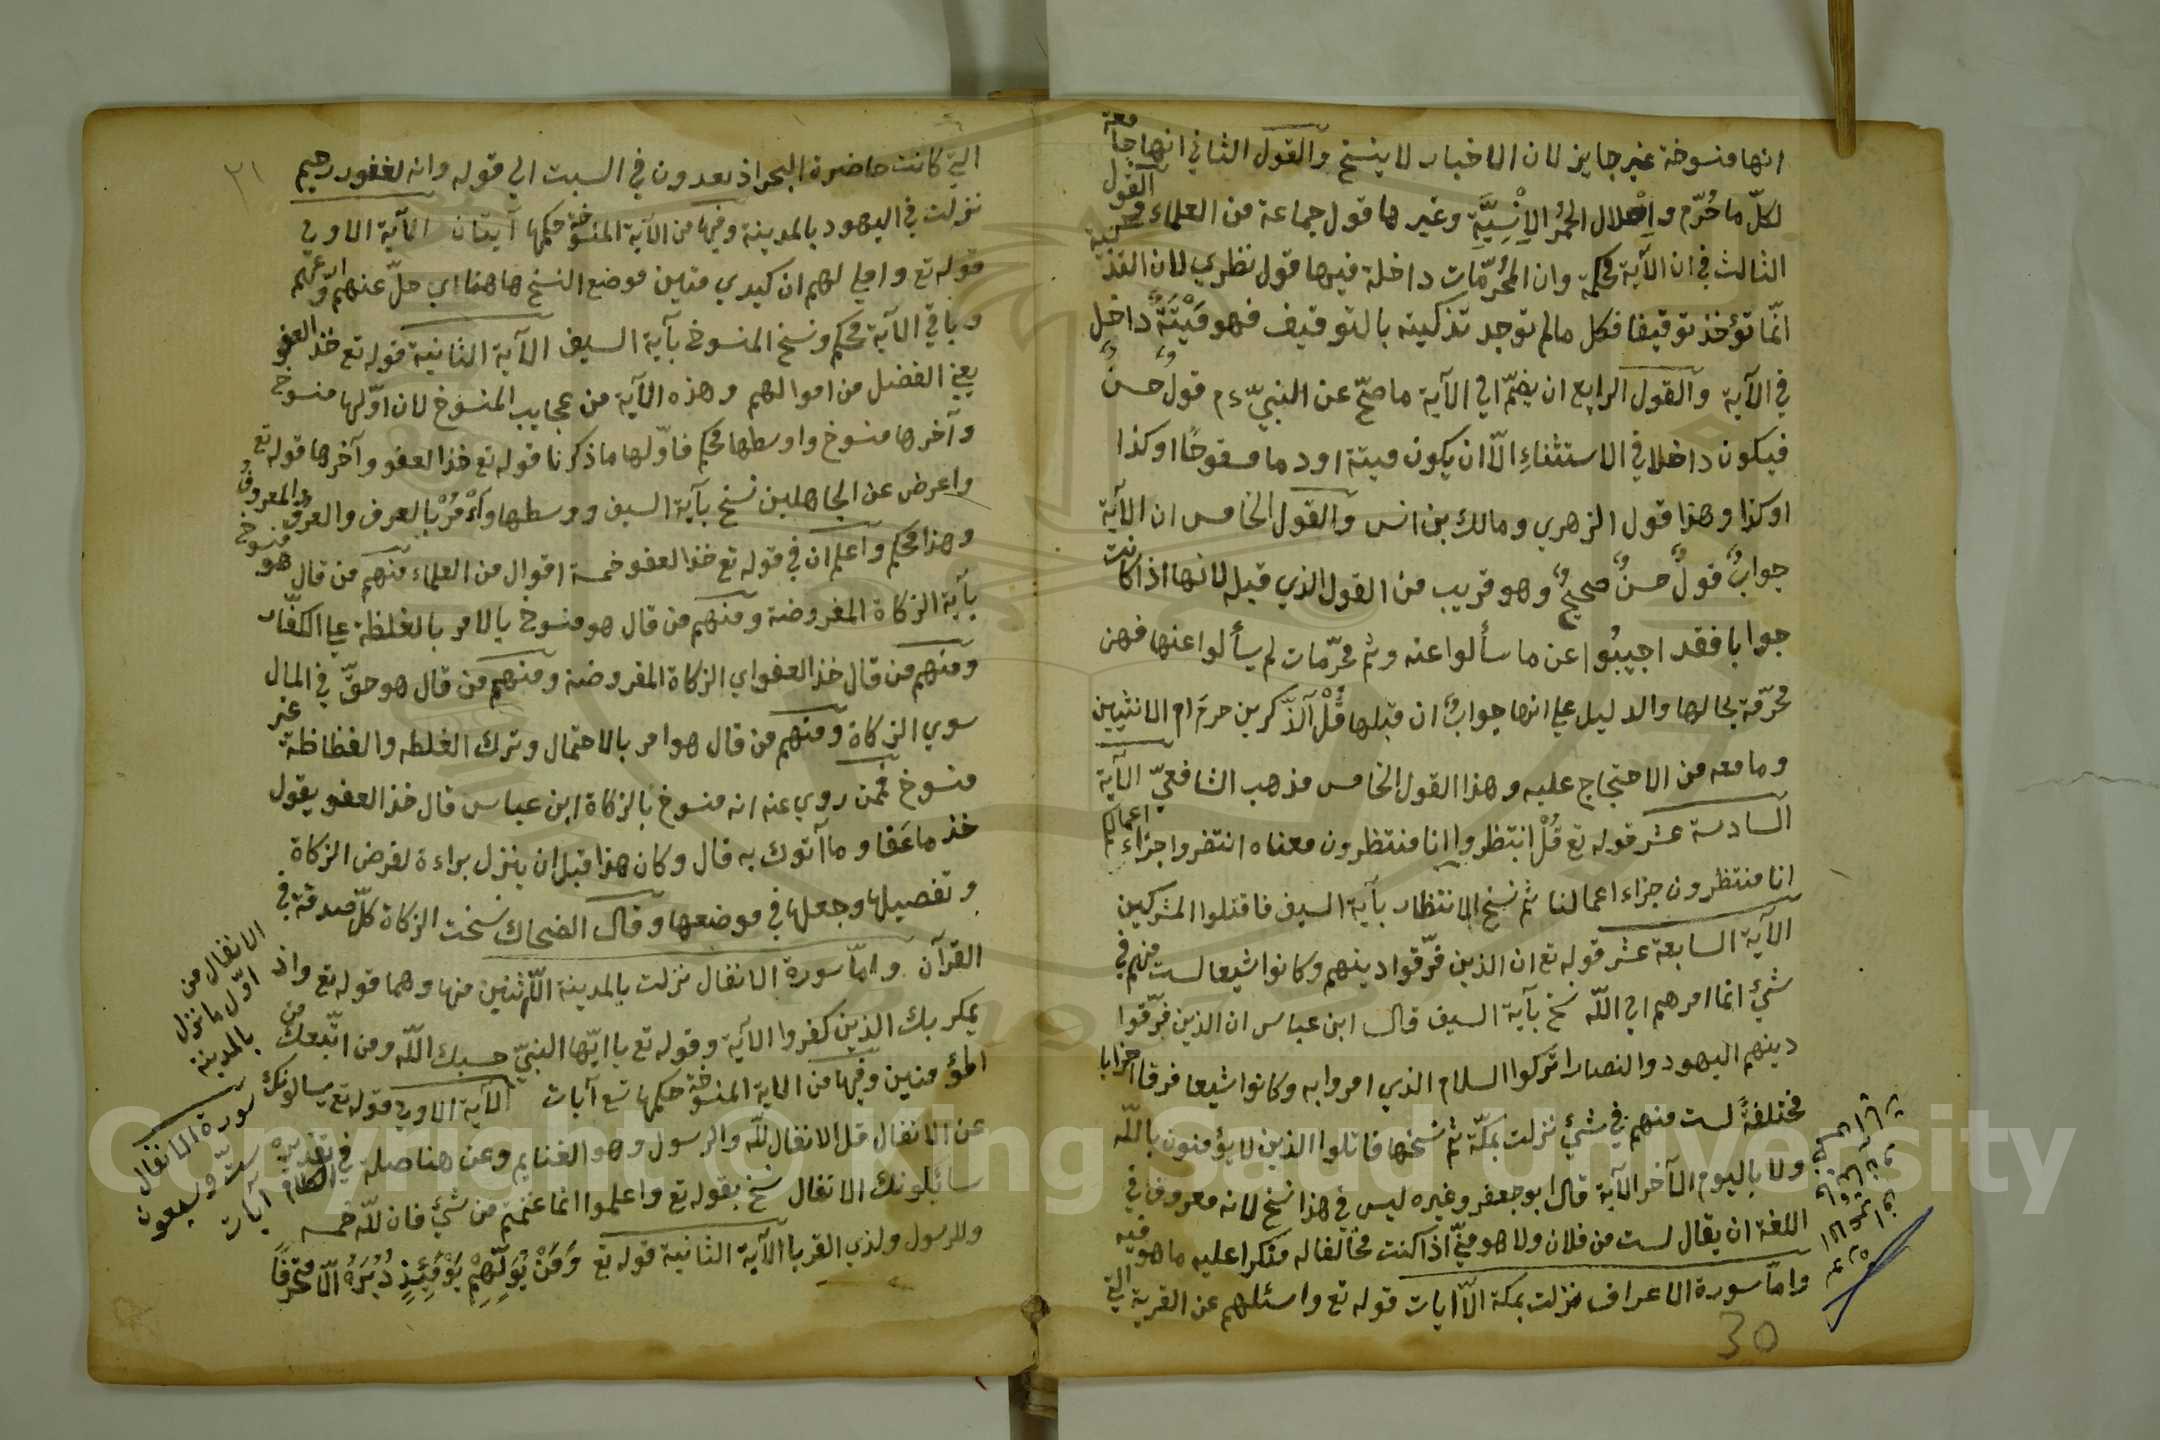 انها منسوخة غير جايز لان الاخبار لا ينسخ والقول الثاني انها جامعة
لكلّ ما حُرّم وإحلال الحُمُر الإنسيَّة وغيرها قول جماعة من العلماء القول
الثالث في ان الآية محكمة وان المحُرّمات داخلة فيها قول نظري لان التذكية
انّما تؤخذ توقيفا فكل ما لم توجد تذكيته بالتوقيف فهو مَيْتَةٌ داخل
في الآية والقول الرابع ان يضمّ الي الآية ما صحّ عن النبيّ ءم قولٌ حسنٌ
فيكون داخلا في الاستثناءِ الّا ان يكون ميتة او دما مسفوحًا او كذا
او كذا وهذا قول الزهري ومالك بن انس والقول الخامس ان الآية
جوابٌ قولٌ حسنٌ صحيحٌ وهو قريب من القول الذي قبله لانها اذا كانت
جوابا فقد اجيبُوا عن ما سألوا عنه وثم محرّمات لم يسألوا عنها فهن
محرّمة بحالها والدليل علي انها جوابٌ ان قبلها قُلْ آلذّكرين حرم ام الانثيين
وما معه من الاحتجاج عليه وهذا القول الخامس مذهب الشافعيّ الآية
السادسة عشر قوله تع قُلْ انتظروا انا منتظرون معناه انتظروا جزاء اعمالكم
انا منتظرون جزاء اعمالنا ثم نسخ الانتظار بآية السيف فاقتلوا المشركين
الآية السابعة عشر قوله تع ان الذين فرّقوا دينهم وكانوا شيعا لست منهم في
شئ انما امرهم الي اللّه نسخ بآية السيف قال ابن عباس ان الذين فرّقوا
دينهم اليهود والنصارا تركوا السلام الذي امروا به وكانوا شيعا فرقا احزابا
مختلفةً لست منهم في شئ نزلت بمكّة ثم نسخها قاتلوا الذين لا يؤمنون باللّه
ولا باليوم الآخر الآية قال ابو جعفر وغيره ليس في هذا نسخ لانه معروف في
اللغة ان يقال لست من فلان ولا هو منّي اذا كنت مخالفا له منكرا عليه ما هو فيه
وامّا سورة الاعراف نزلت بمكة الّا آيات قوله تع واسئلهم عن القرية التي
30
٣١
التي كانت حاضرة البحر اذ يعدون في السبت الي قوله وانه لغفور رحيم
نزلت في اليهود بالمدينة وفيها من الآية المنسوخة حكمها آيتان الآية الاولي
قوله تع واملي لهم ان كيدي متين موضع النسخ هاهنا اي خلّ عنهم ودعهم
وباقي الآية محكم ونسخ المنسوخ بآية السيف الآية الثانية قوله تع خذ العفو
يعني الفضل من اموالهم وهذه الآية من عجايب المنسوخ لان اوّلها منسوخ
وآخرها منسوخ واوسطها محكم فاوّلها ما ذكرنا قوله تع خذ العفو وآخرها قوله تع
واعرض عن الجاهلين نسخ بآية السيف ووسطها وأْمُرْ بالعرف والعرف المعروف
وهذا محكم واعلم ان في قوله تع خذ العفو خمسة اقوال من العلماء منهم من قال هو منسوخ
بآية الزكاة المفروضة ومنهم من قال هو منسوخ بالامر بالغلظة علي الكفّار
ومنهم من قال خذ العفو اي الزكاة المفروضة ومنهم من قال هو حقّ في المال
سوي الزكاة ومنهم من قال هو امر بالاحتمال وترك الغلظه والفظاظة غير
منسوخ فمن روي عنه انه منسوخ بالزكاة ابن عباس قال خذ العفو يقول
خذ ما عَفا وما آتوك به قال وكان هذا قبل ان ينزل براءة لفرض الزكاة
وتفصيلها وجعلها في موضعها وقال الضحاك نسخت الزكاة كلّ صدقة في
القرآن وامّا سورة الانفال نزلت بالمدينة الّا ثنين منها وهما قوله تع واذ
يمكر بك الذين كفروا الآية وقوله تع يا ايّها النبيّ حسبك اللّه ومن اتّبعك من
المؤمنين وفيها من الاية المنسوخة حكمها تسع آيات الآية الاولي قوله تع يسالونك
عن الانفال قل الانفال للّه والرسول وهو الغنايم وعن هنا صلة في تقدير الكلام
سائلونك الانفال نسخ بقوله تع واعلموا انما غنمتم من شئ فان للّه خمسه
وللرسول ولذي القربا الآية الثانية قوله تع وَمَنْ يُوَلِّهِمْ يَوْمَئِذٍ دُبُرَهُ الّا متحرفًا
الانفال من
اوّل ما نزل
بالمدينة
سورة الانفال
ستّ وسبعون
آيات
Copyright © King Saud University